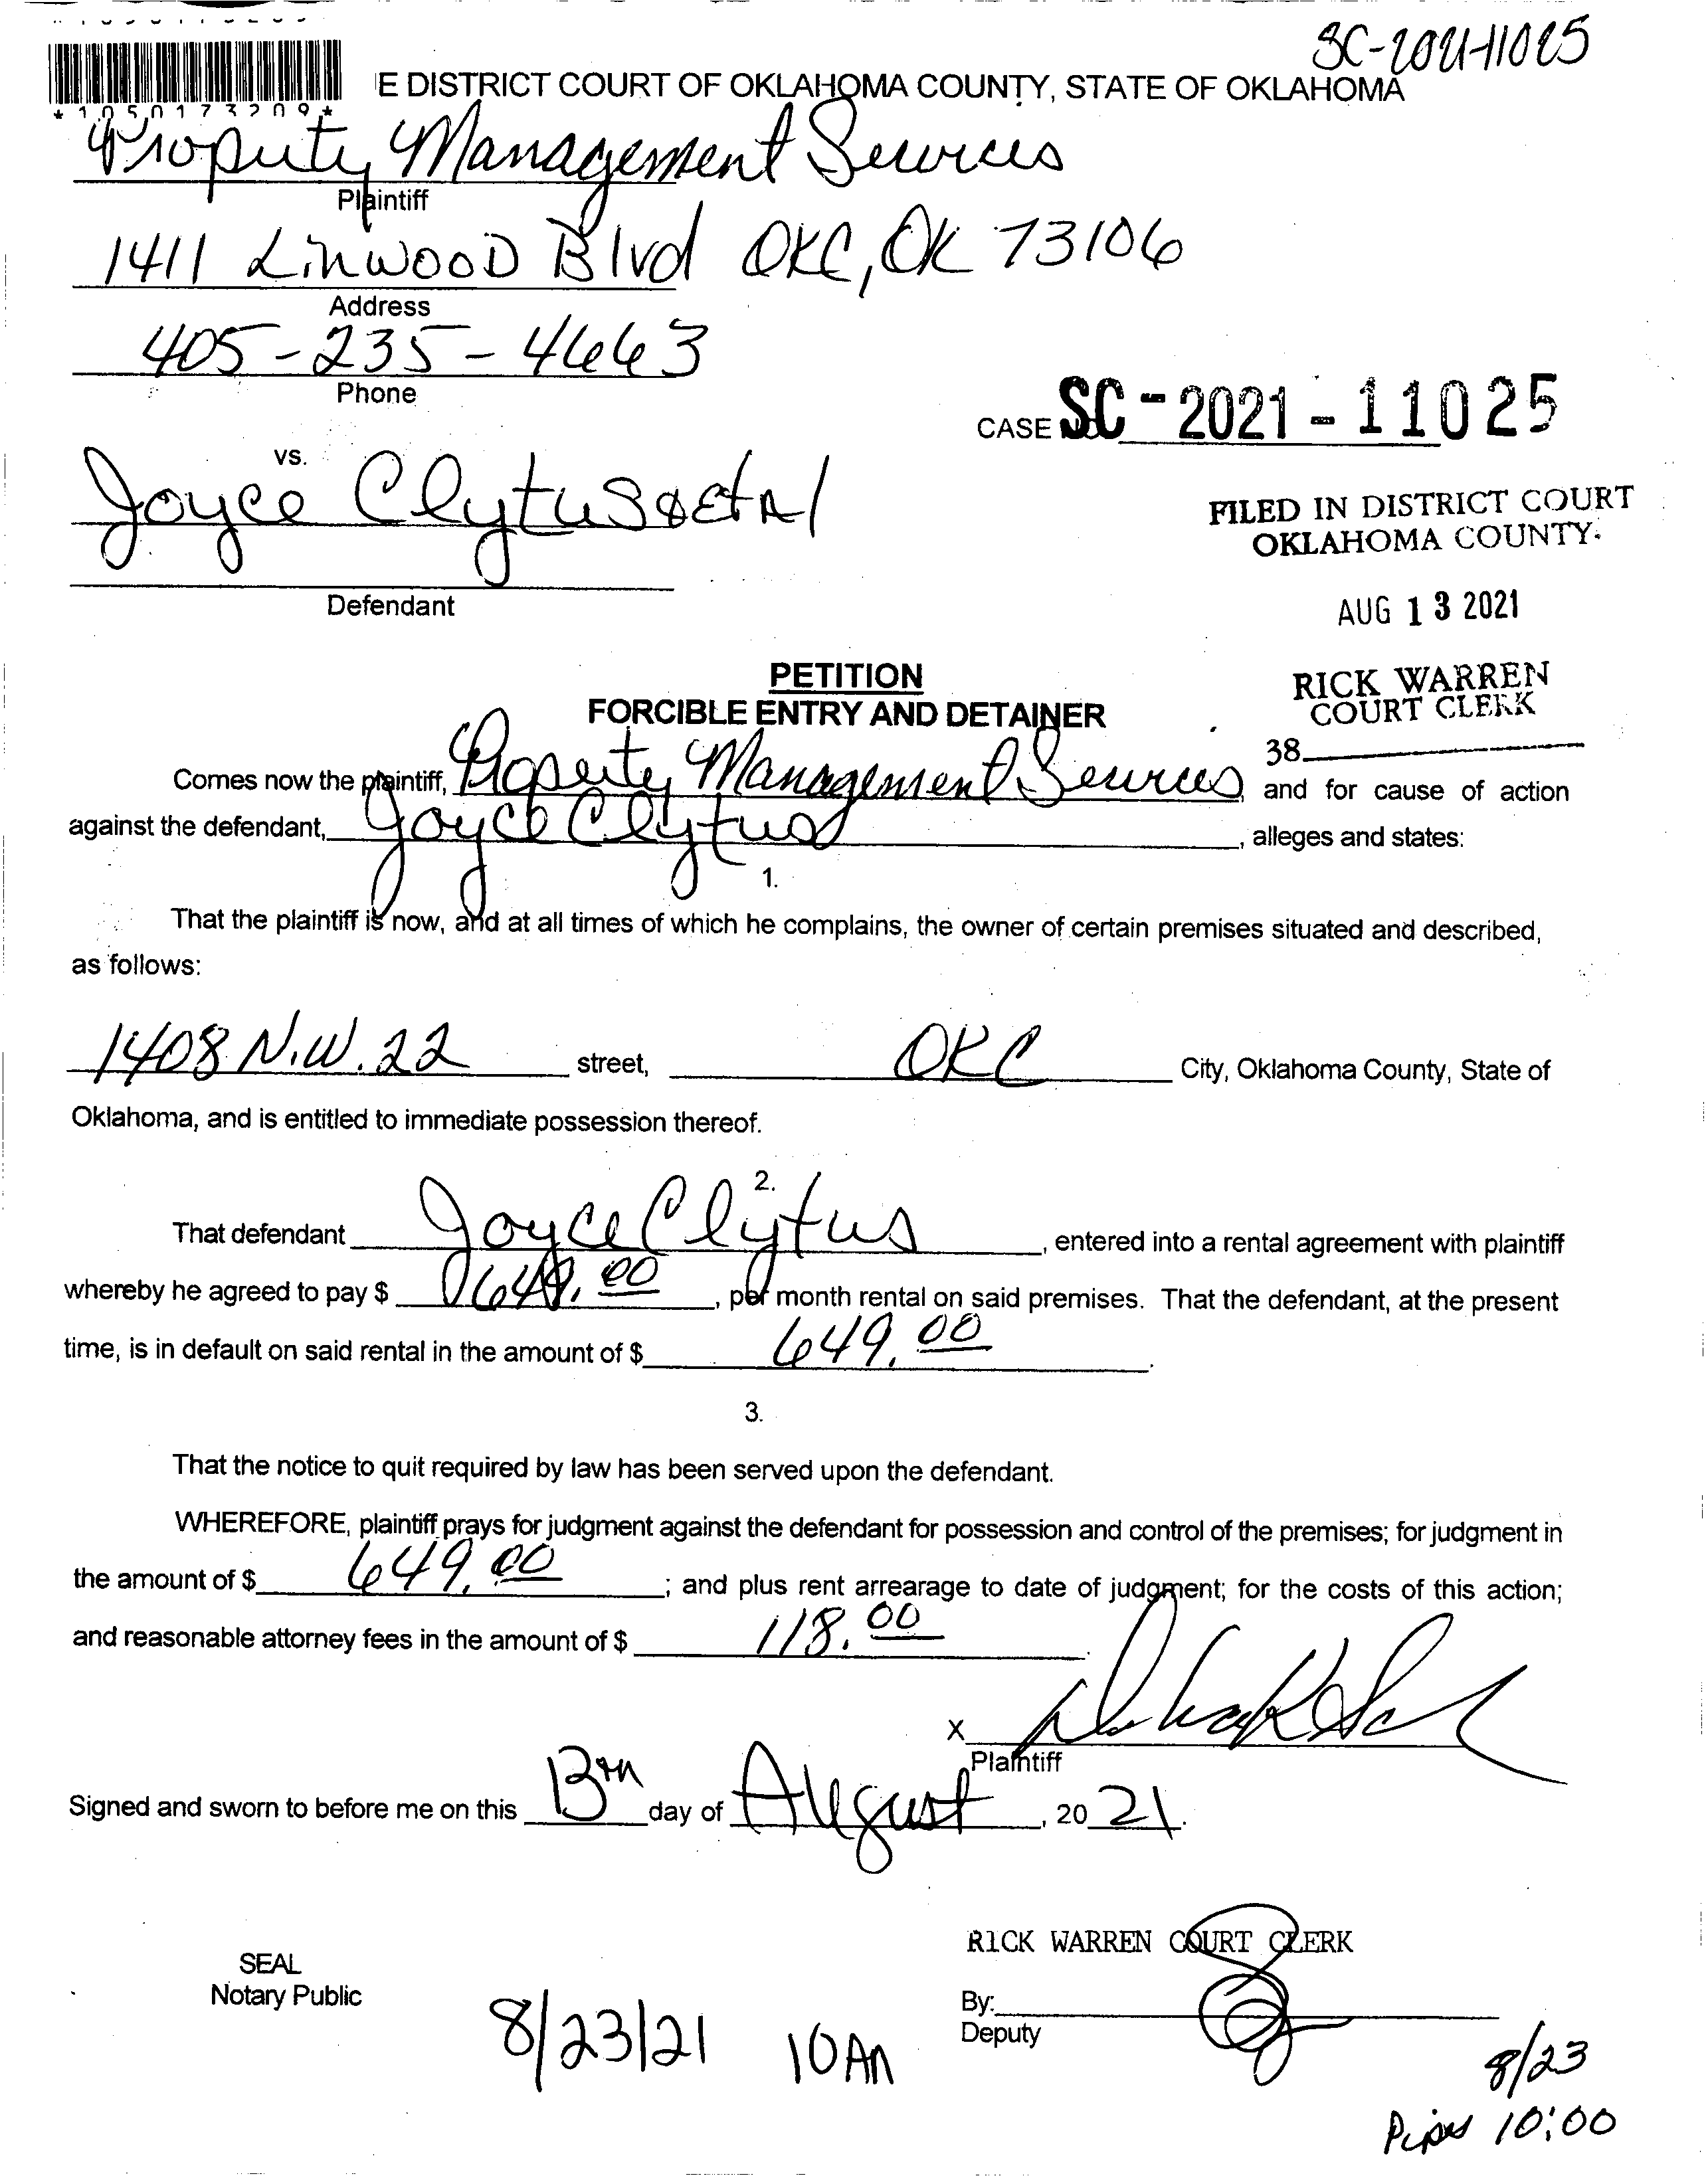 SC-2021-11025
E DISTRICT COURT OF OKLAHOMA COUNTY, STATE OF OKLAHOMA
*1050173209*
Property Management Services
Plaintiff
1411 Linwood Blvd OKC, OK 73106
Address
405-235-4663
Phone
CASE SC-2021-11025
vs.
Joyce Clytus & Et Al
Defendant
FILED IN DISTRICT COURT
OKLAHOMA COUNTY.
AUG 13 2021
RICK WARREN
COURT CLERK
38
PETITION
FORCIBLE ENTRY AND DETAINER
Comes now the plaintiff, Property Management Services, and for cause of action
against the defendant, Joyce Clytus, alleges and states:
1.
That the plaintiff is now, and at all times of which he complains, the owner of certain premises situated and described,
as follows:
1408 N.W. 22 street, OKC City, Oklahoma County, State of
Oklahoma, and is entitled to immediate possession thereof.
2.
That defendant Joyce Clytus, entered into a rental agreement with plaintiff
whereby he agreed to pay $ 649.00, per month rental on said premises. That the defendant, at the present
time, is in default on said rental in the amount of $ 649.00.
3.
That the notice to quit required by law has been served upon the defendant.
WHEREFORE, plaintiff prays for judgment against the defendant for possession and control of the premises; for judgment in
the amount of $ 649.00; and plus rent arrearage to date of judgment; for the costs of this action;
and reasonable attorney fees in the amount of $ 118.00.
X
Plaintiff
Signed and sworn to before me on this 13th day of August, 2021.
RICK WARREN COURT CLERK
SEAL
Notary Public
By:
Deputy
8/23/21 10 Am
8/23
10:00